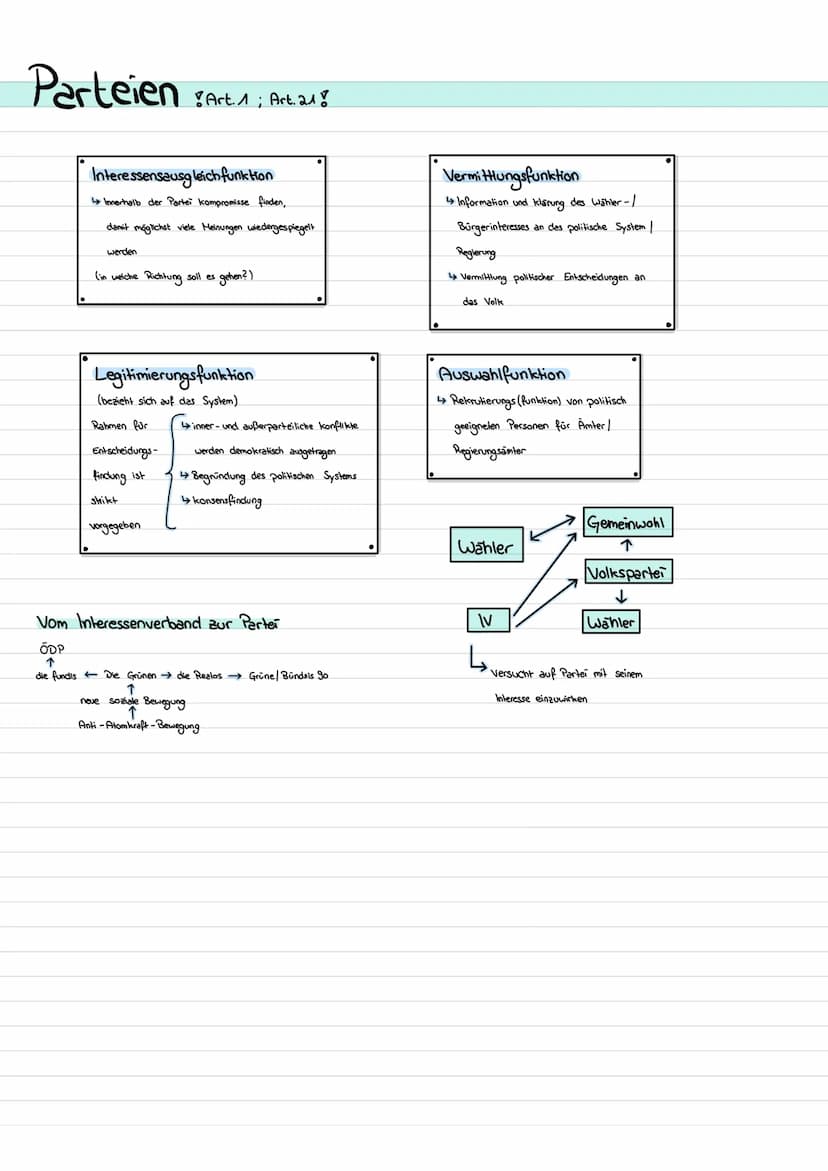 Parteien !Art.1 ; Art.21!
Interessensausgleichfunktion
↳ Innerhalb der Partei kompromisse finden,
damit möglichst viele Meinungen wiedergespiegelt
werden
(in welche Richtung soll es gehen?)
Vermittlungsfunktion
↳ Information und klärung des Wähler-/
Bürgerinteresses an des politische System /
Regierung
↳ Vermittlung politischer Entscheidungen an
das Volk
Legitimierungsfunktion
(bezieht sich auf das System)
Rahmen für
Entscheidungs-
findung ist
strikt
vorgegeben
↳ inner- und außerparteiliche konflikte
werden demokratisch ausgetragen
↳ Begründung des politischen Systems
↳ konsensfindung
Auswahlfunktion
↳ Rekrutierungs(funktion) von politisch
geeigneten Personen für Ämter/
Regierungsämter
Wähler
Gemeinwohl
↑
Volkspartei
↓
Wähler
IV
↳ versucht auf Partei mit seinem
Interesse einzuwirken
Vom Interessenverband zur Partei
ÖDP
↑
die fundis ← Die Grünen → die Realos → Grüne/Bündnis 90
↑
neue soziale Bewegung
↑
Anti-Atomkraft-Bewegung